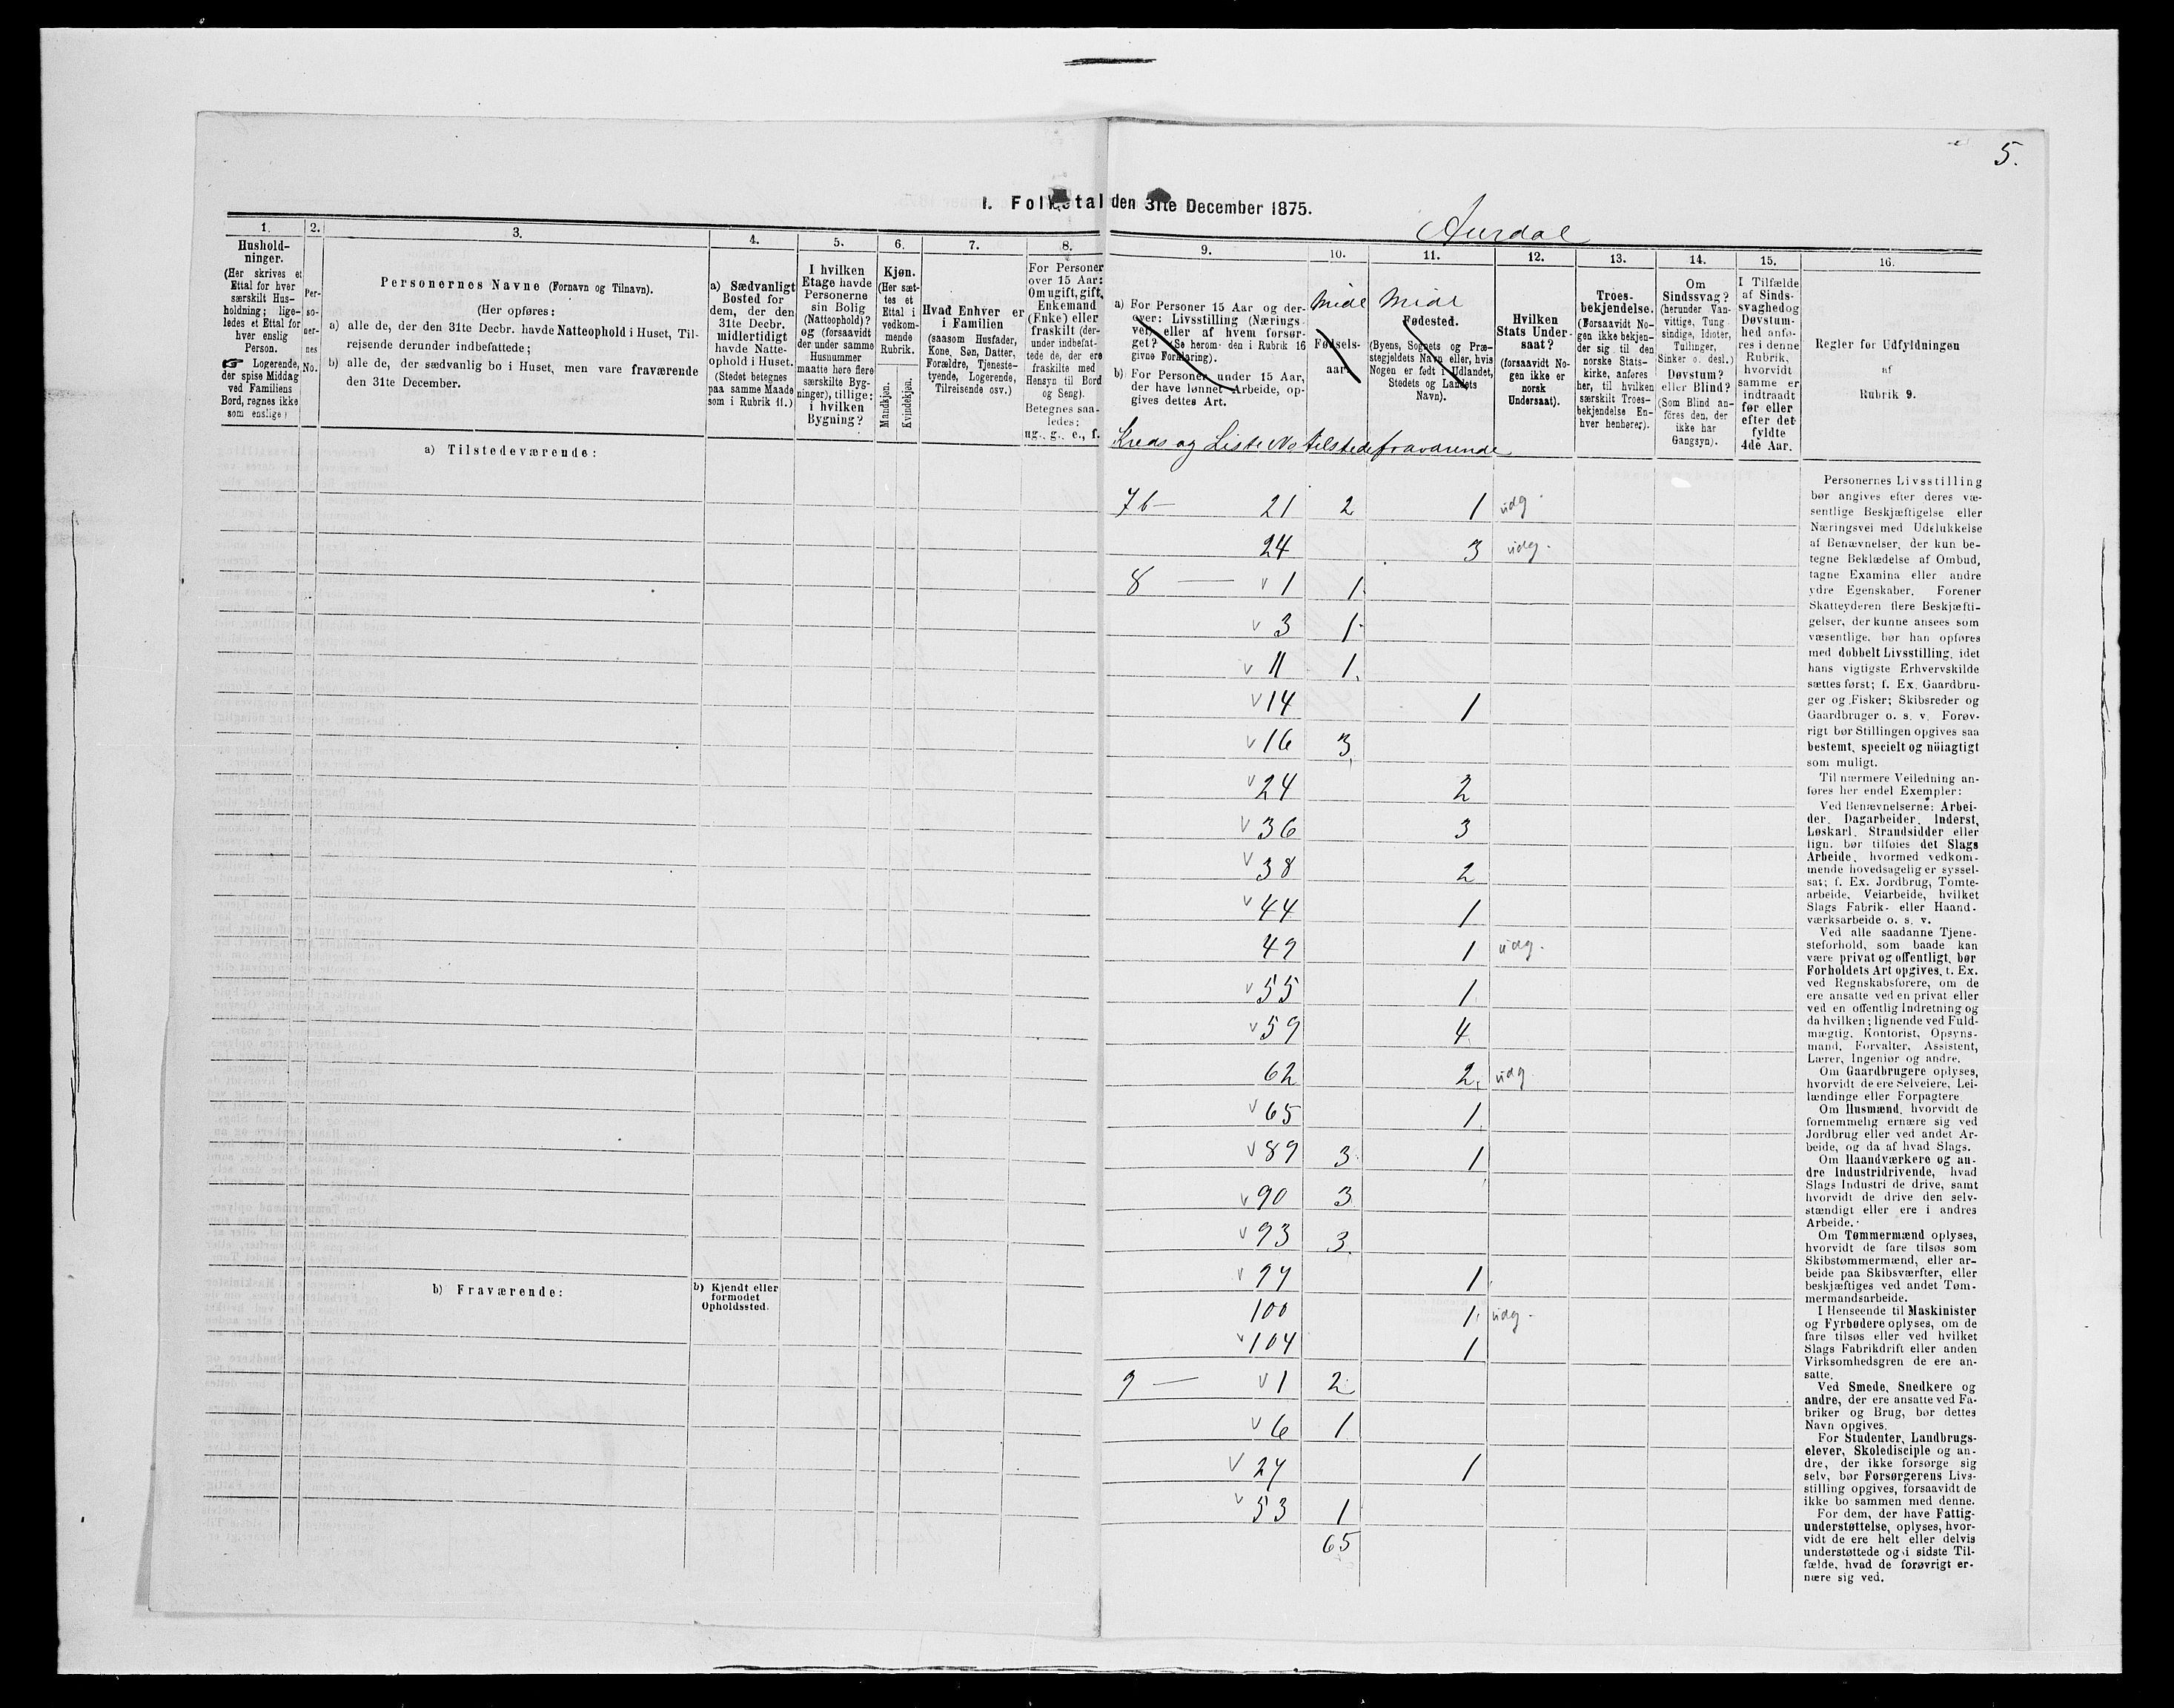 5.
I. Folketal den 31te December 1875.
Aurdal
1.
Hushold-
ninger.
(Her skrives et
Ettal for hver
særskilt Hus-
holdning; lige-
ledes et Ettal for
hver enslig
Person.
☞ Logerende,
der spise Middag
ved Familiens
Bord, regnes ikke
som enslige)
2.
Per-
so-
ner-
nes
No.
3.
Personernes Navne (Fornavn og Tilnavn).
(Her opføres:
a) alle de, der den 31te Decbr. havde Natteophold i Huset, Til-
rejsende derunder indbefattede;
b) alle de, der sædvanlig bo i Huset, men vare fraværende
den 31te December.
4.
a) Sædvanligt
Bosted for
dem, der den
31te Decbr.
midlertidigt
havde Natte-
ophold i Huset.
(Stedet betegnes
paa samme Maade
som i Rubrik 11.)
5.
I hvilken
Etage havde
Personerne
sin Bolig
(Natteophold)?
og (forsaavidt
der under samme
Husnummer
maatte høre flere
særskilte Byg-
ninger), tillige:
i hvilken
Bygning?
6.
Kjøn.
(Her sæt-
tes et
Ettal i
vedkom-
mende
Rubrik.
Mandkjøn.
Kvindekjøn.
7.
Hvad Enhver er
i Familien
(saasom Husfader,
Kone, Søn, Datter,
Forældre, Tjeneste-
tyende, Logerende,
Tilreisende osv.)
8.
For Personer
over 15 Aar:
Om ugift, gift,
Enkemand
(Enke) eller
fraskilt (der-
under indbefat-
tede de, der ere
fraskilte med
Hensyn til Bord
og Seng).
Betegnes saa-
ledes:
ug., g., e., f.
9.
a) For Personer 15 Aar og der-
over: Livsstilling (Nærings-
vei) eller af hvem forsør-
get? (Se herom den i Rubrik 16
givne Forklaring).
b) For Personer under 15 Aar,
der have lønnet Arbeide, op-
gives dettes Art.
10.
Midl
Fødsels-
aar.
11.
Midl
Fødested.
(Byens, Sognets og Præ-
stegjeldets Navn eller, hvis
Nogen er født i Udlandet,
Stedets og Landets
Navn).
12.
Hvilken
Stats Under-
saat?
(forsaavidt No-
gen ikke er
norsk
Undersaat).
13.
Troes-
bekjendelse.
(Forsaavidt No-
gen ikke bekjen-
der sig til den
norske Stats-
kirke, anføres
her, til hvilken
særskilt Troes-
bekjendelse En-
hver henhører).
14.
Om
Sindssvag?
(herunder Van-
vittige, Tung-
sindige, Idioter,
Tullinger,
Sinker o. desl.)
Døvstum?
eller Blind?
(Som Blind an-
føres den, der
ikke har
Gangsyn).
15.
I Tilfælde
af Sinds-
svaghed og
Døvstum-
hed anfø-
res i denne
Rubrik,
hvorvidt
samme er
indtraadt
før eller
efter det
fyldte
4de Aar.
16.
Regler for Udfyldningen
af
Rubrik 9.
Kreds og Liste No tilstede fraværende
a) Tilstedeværende:
7b — 21 2 1 udg.
24 3 udg.
8 — v 1 1.
v 3 1.
v 11 1.
v 14 1
v 16 3.
v 24 2
v 36 3
v 38 2
v 44 1
49 1 udg.
v 55 1
v 59 4
62 2. udg
v 65 1.
v 89 3. 1
v 90 3
v 93 3.
v 97 1.
100 1. udg.
v 104 1
9 — v 1 2.
v 6 1
v 27 1
v 53 1
65
b) Fraværende:
b) Kjendt eller
formodet
Opholdssted.
Personernes Livsstilling
bør angives efter deres væ-
sentlige Beskjæftigelse eller
Næringsvei med Udelukkelse
af Benævnelser, der kun be-
tegne Beklædelse af Ombud,
tagne Examina eller andre
ydre Egenskaber. Forener
Skatteyderen flere Beskjæfti-
gelser, der kunne ansees som
væsentlige, bør han opføres
med dobbelt Livsstilling, idet
hans vigtigste Erhvervskilde
sættes først; f. Ex. Gaardbru-
ger og Fisker; Skibsreder og
Gaardbruger o. s. v. Forøv-
rigt bør Stillingen opgives saa
bestemt, specielt og nöiagtigt
som muligt.
Til nærmere Veiledning an-
føres her endel Exempler:
Ved Benævnelserne: Arbei-
der, Dagarbeider, Inderst,
Løskarl, Strandsidder eller
lign. bør tilføies det Slags
Arbeide, hvormed vedkom-
mende hovedsagelig er syssel-
sat; f. Ex. Jordbrug, Tomte-
arbeide, Veiarbeide, hvilket
Slags Fabrik- eller Haand-
værksarbeide o. s. v.
Ved alle saadanne Tjene-
steforhold, som baade kan
være privat og offentligt, bør
Forholdets Art opgives, t. Ex.
ved Regnskabsførere, om de
ere ansatte ved en privat eller
ved en offentlig Indretning og
da hvilken; lignende ved Fuld-
mægtig, Kontorist, Opsyns-
mand, Forvalter, Assistent,
Lærer, Ingeniør og andre.
Om Gaardbrugere oplyses,
hvorvidt de ere Selveiere, Lei-
lændinge eller Forpagtere.
Om Husmænd, hvorvidt de
fornemmelig ernære sig ved
Jordbrug eller ved andet Ar-
beide, og da af hvad Slags.
Om Haandværkere og an-
dre Industridrivende, hvad
Slags Industri de drive, samt
hvorvidt de drive den selv-
stændigt eller ere i andres
Arbeide.
Om Tømmermænd oplyses,
hvorvidt de fare tilsøs som
Skibstømmermænd, eller ar-
beide paa Skibsværfter, eller
beskjæftiges ved andet Tøm-
mermandsarbeide.
I Henseende til Maskinister
og Fyrbødere oplyses, om de
fare tilsøs eller ved hvilket
Slags Fabrikdrift eller anden
Virksomhedsgren de ere an-
satte.
Ved Smede, Snedkere og
andre, der ere ansatte ved Fa-
briker og Brug, bør dettes
Navn opgives.
For Studenter, Landbrugs-
elever, Skoledisciple og an-
dre, der ikke forsørge sig
selv, bør Forsørgerens Livs-
stilling opgives, forsaavidt de
ikke bo sammen med denne.
For dem, der have Fattig-
understøttelse, oplyses, hvor-
vidt de ere helt eller delvis
understøttede og i sidste Til-
fælde, hvad de forøvrigt er-
nære sig ved.